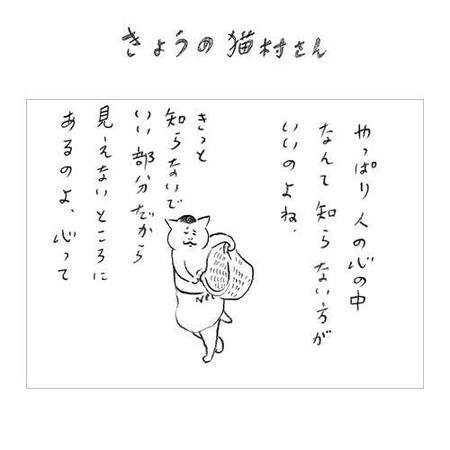 きょうの猫村さん
やっぱり人の心の中
なんて知らない方が
いいのよね.
きっと
知らないで
いい部分だから
見えないところに
あるのよ、心って
NEKO